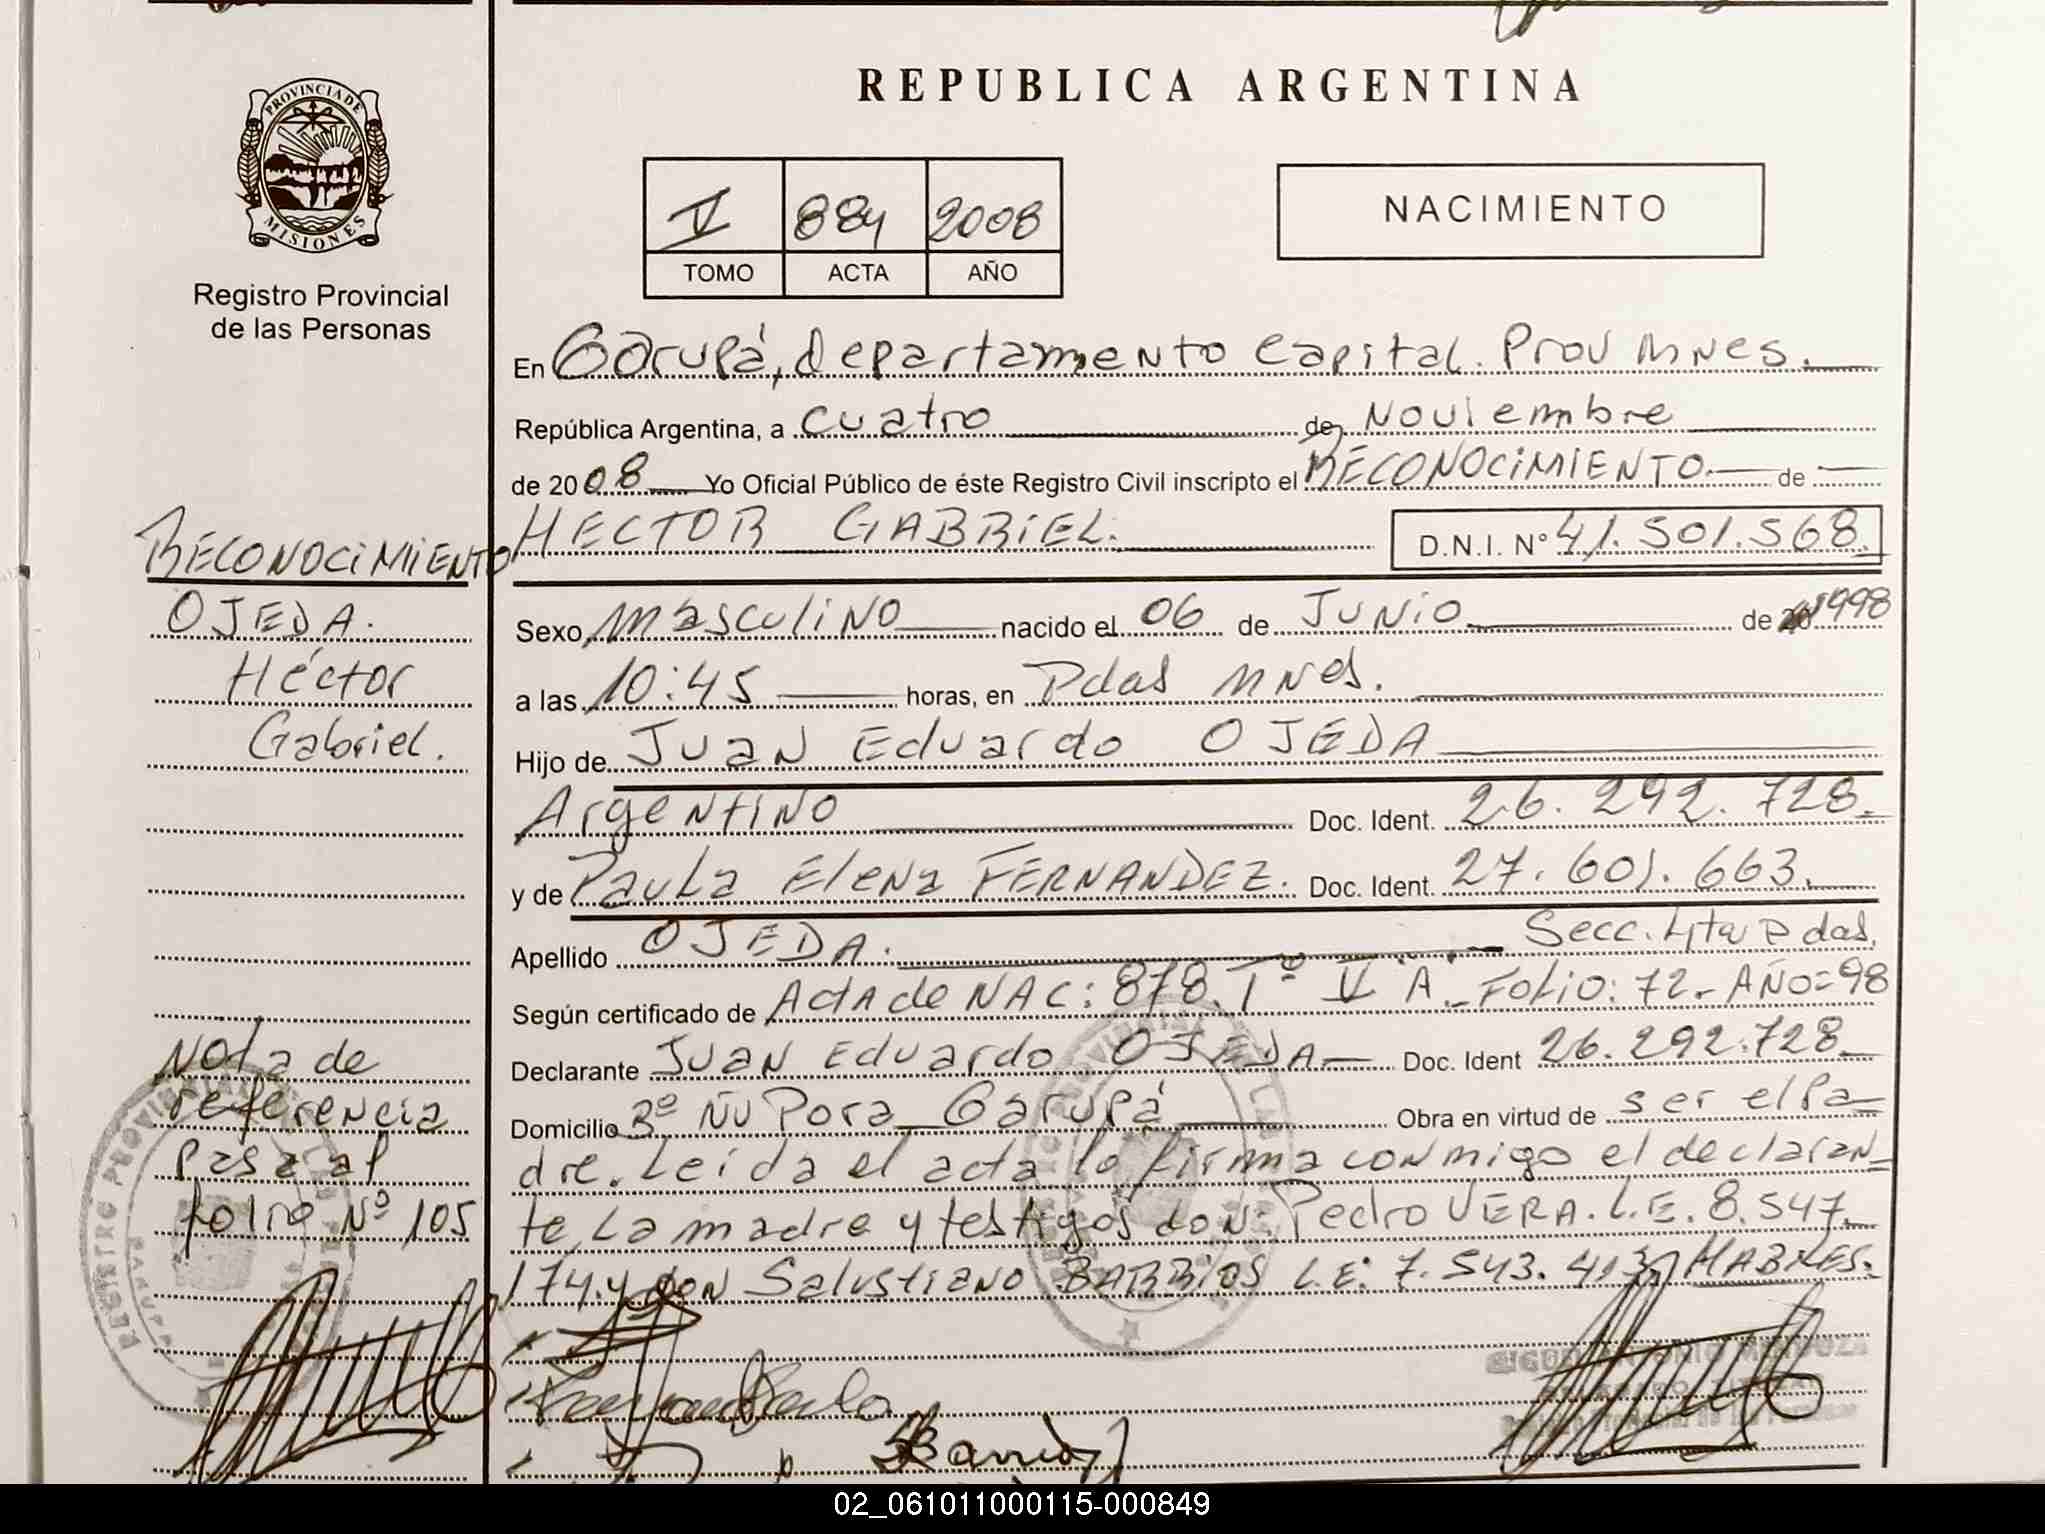 REPUBLICA ARGENTINA
PROVINCIA DE
MISIONES
Registro Provincial
de las Personas
V 884 2008
TOMO ACTA AÑO
NACIMIENTO
En Garupá, departamento Capital. Prov Mnes.
República Argentina, a cuatro de Noviembre
de 2008 Yo Oficial Público de éste Registro Civil inscripto el RECONOCIMIENTO de
HECTOR GABRIEL. D.N.I. Nº 41.501.568.
Sexo masculino nacido el 06 de Junio de 1998
a las 10:45 horas, en Pdas Mnes.
Hijo de Juan Eduardo OJEDA
Argentino Doc. Ident. 26.292.728.
y de Paula Elena FERNANDEZ. Doc. Ident. 27.601.663.
Apellido OJEDA. Secc. 4ta Pdas.
Según certificado de Acta de NAC: 878. Tº V "A". Folio: 72. AÑO=98
Declarante Juan Eduardo OJEDA Doc. Ident 26.292.728
Domicilio Bº Ñu Pora Garupá Obra en virtud de ser el Pa=
dre. Leída el acta la firma conmigo el declaran=
te, La madre y testigos don: Pedro VERA. L.E. 8.547.
174. y don Salustiano BARRIOS L.E: 7.543.413, HABILES.
RECONOCIMIENTO
OJEDA.
Héctor
Gabriel.
Nota de
referencia
Pasa al
folio Nº 105
REGISTRO PROVINCIAL DE LAS
GARUPA
02_061011000115-000849